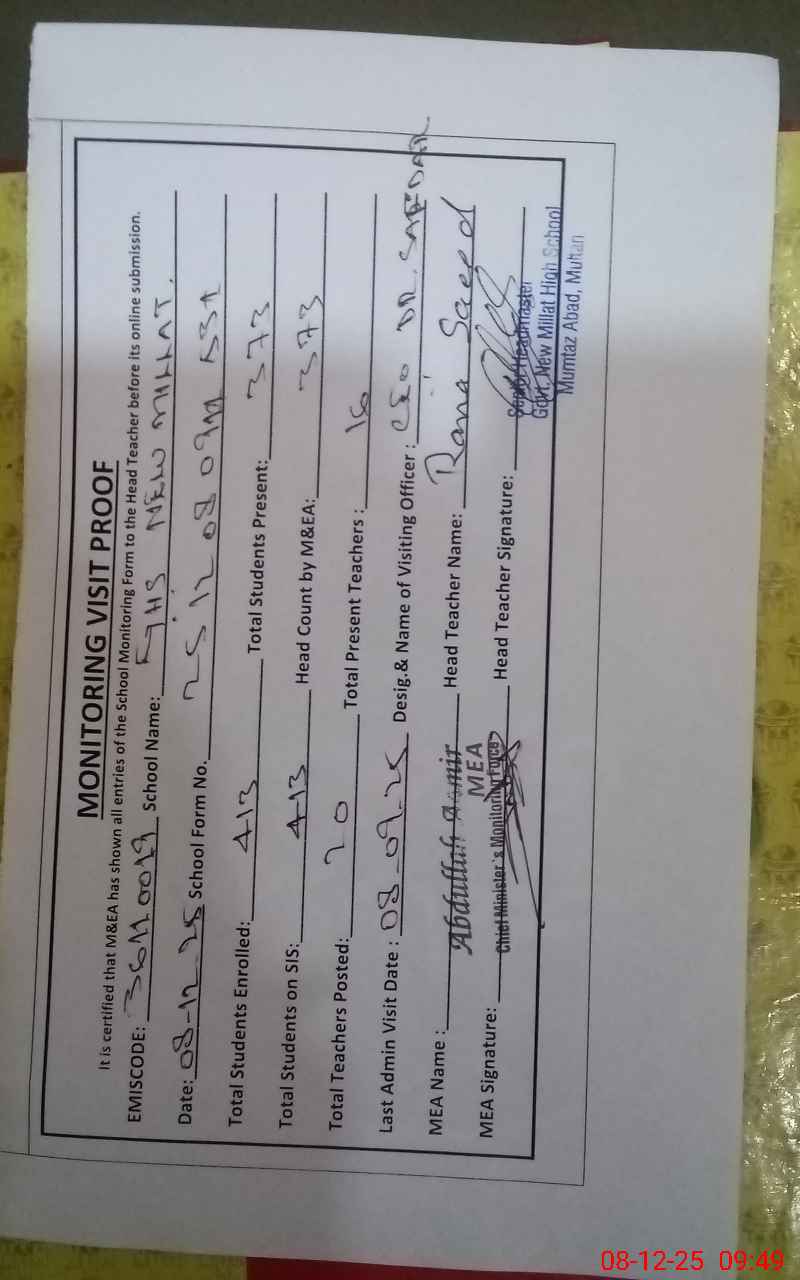 MONITORING VISIT PROOF
It is certified that M&EA has shown all entries of the School Monitoring Form to the Head Teacher before its online submission.
EMISCODE: 36120019 School Name: GHS NEW MILLAT.
Date: 08-12-25 School Form No. 25 12 08 09M
Total Students Enrolled: 413 Total Students Present: 373
Total Students on SIS: 413 Head Count by M&EA: 373
Total Teachers Posted: 20 Total Present Teachers: 16
Last Admin Visit Date: 08-09-25 Desig.& Name of Visiting Officer: CEO DR. SAFDAR
MEA Name: Abdullah Aamir Head Teacher Name: Rana Saeed
MEA
MEA Signature: Chief Minister's Monitoring Force Head Teacher Signature:
Senior Headmaster
Govt. New Millat High School
Mumtaz Abad, Multan
08-12-25 09:49